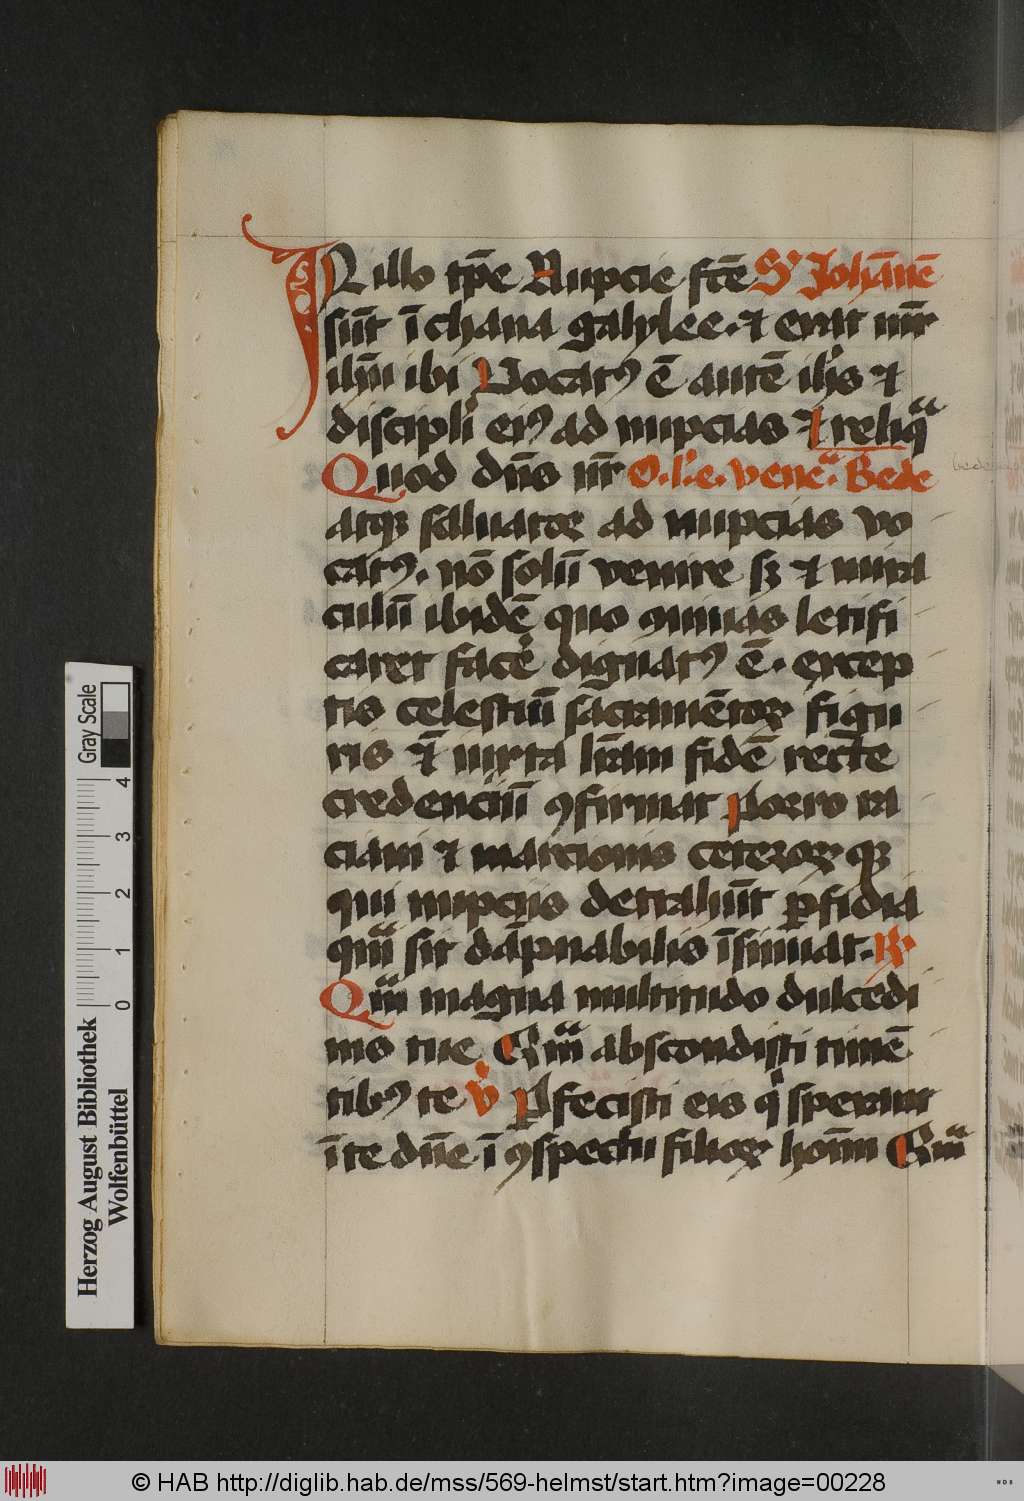 IN illo tp̄e Nupcie fcē S' Joha̅nē
su̅t ī chana galylee. ⁊ erat mr̄
ihū ibi Vocatꝰ ē autē ihs̄ ⁊
discipli eiꝰ ad nupcias Et reliqᵃ
Quod dn̄s nr̄ O.l'.e. veneᵃ. Bede
atqꝫ saluator ad nupcias vo
catꝰ. nō solū venire sꝫ ⁊ mira
culū ibidē quo ꝯuiuas letifi
caret facē dignatꝰ ē. excep
tis celestiū sacramētoꝝ figu
ris ⁊̄ iuxta lr̄am fidē recte
credenciū ꝯfirmat Porro ta
ciani ⁊ marcionis ceteroꝝ qꝫ
qui nupcijs detrahūt ꝑfidia
qm̄ sit da̅pnabilis īsinuat. ℟
Qᵃm magna multitudo dulcedi
nis tue Quᵃm abscondisti timē
tibꝰ te ℣ Pfecisti eis qⁱ sperant
ī te dn̄e ī ꝯspectu filioꝝ hoīm Quᵃm
Gray Scale
4
3
2
1
0
Herzog August Bibliothek
Wolfenbüttel
© HAB http://diglib.hab.de/mss/569-helmst/start.htm?image=00228